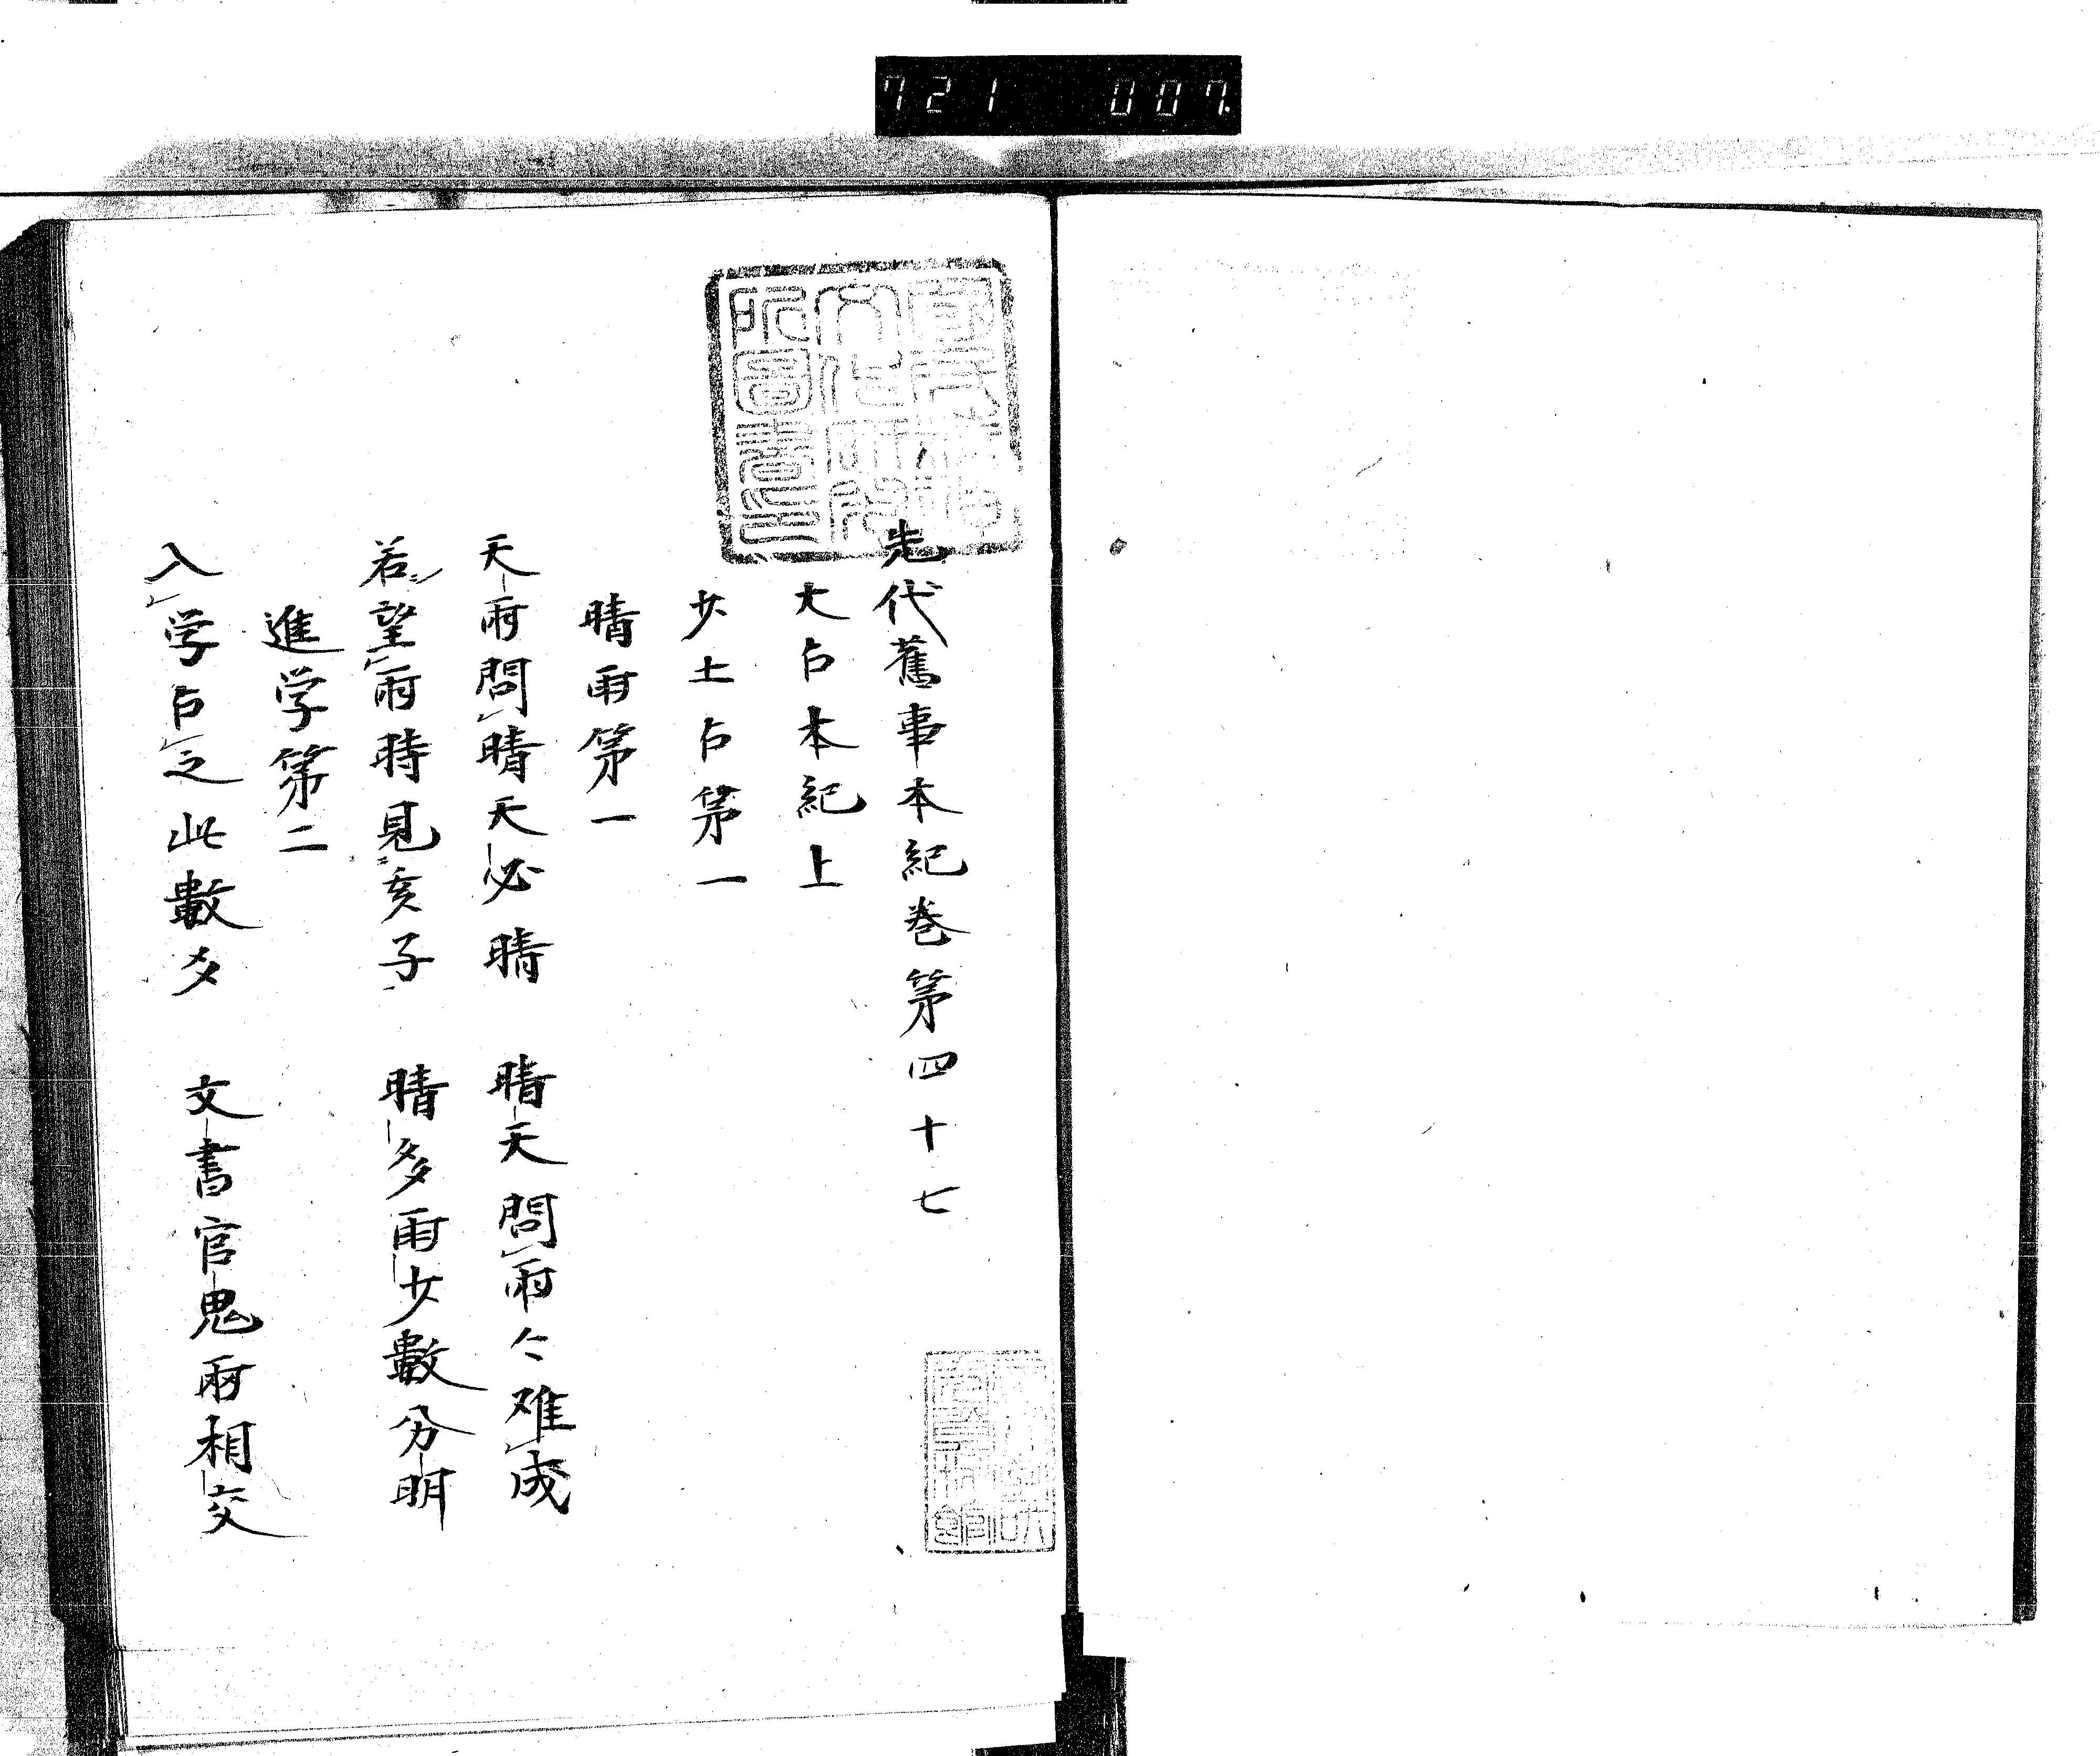 721 007
先代舊事本紀巻第四十七
大占本紀上
少土占第一
晴雨第一
天雨問晴天必晴 晴天問雨々难成
若望雨時見亥子 晴多雨少數分明
進学第二
入学占之此數多 文書官鬼両相交